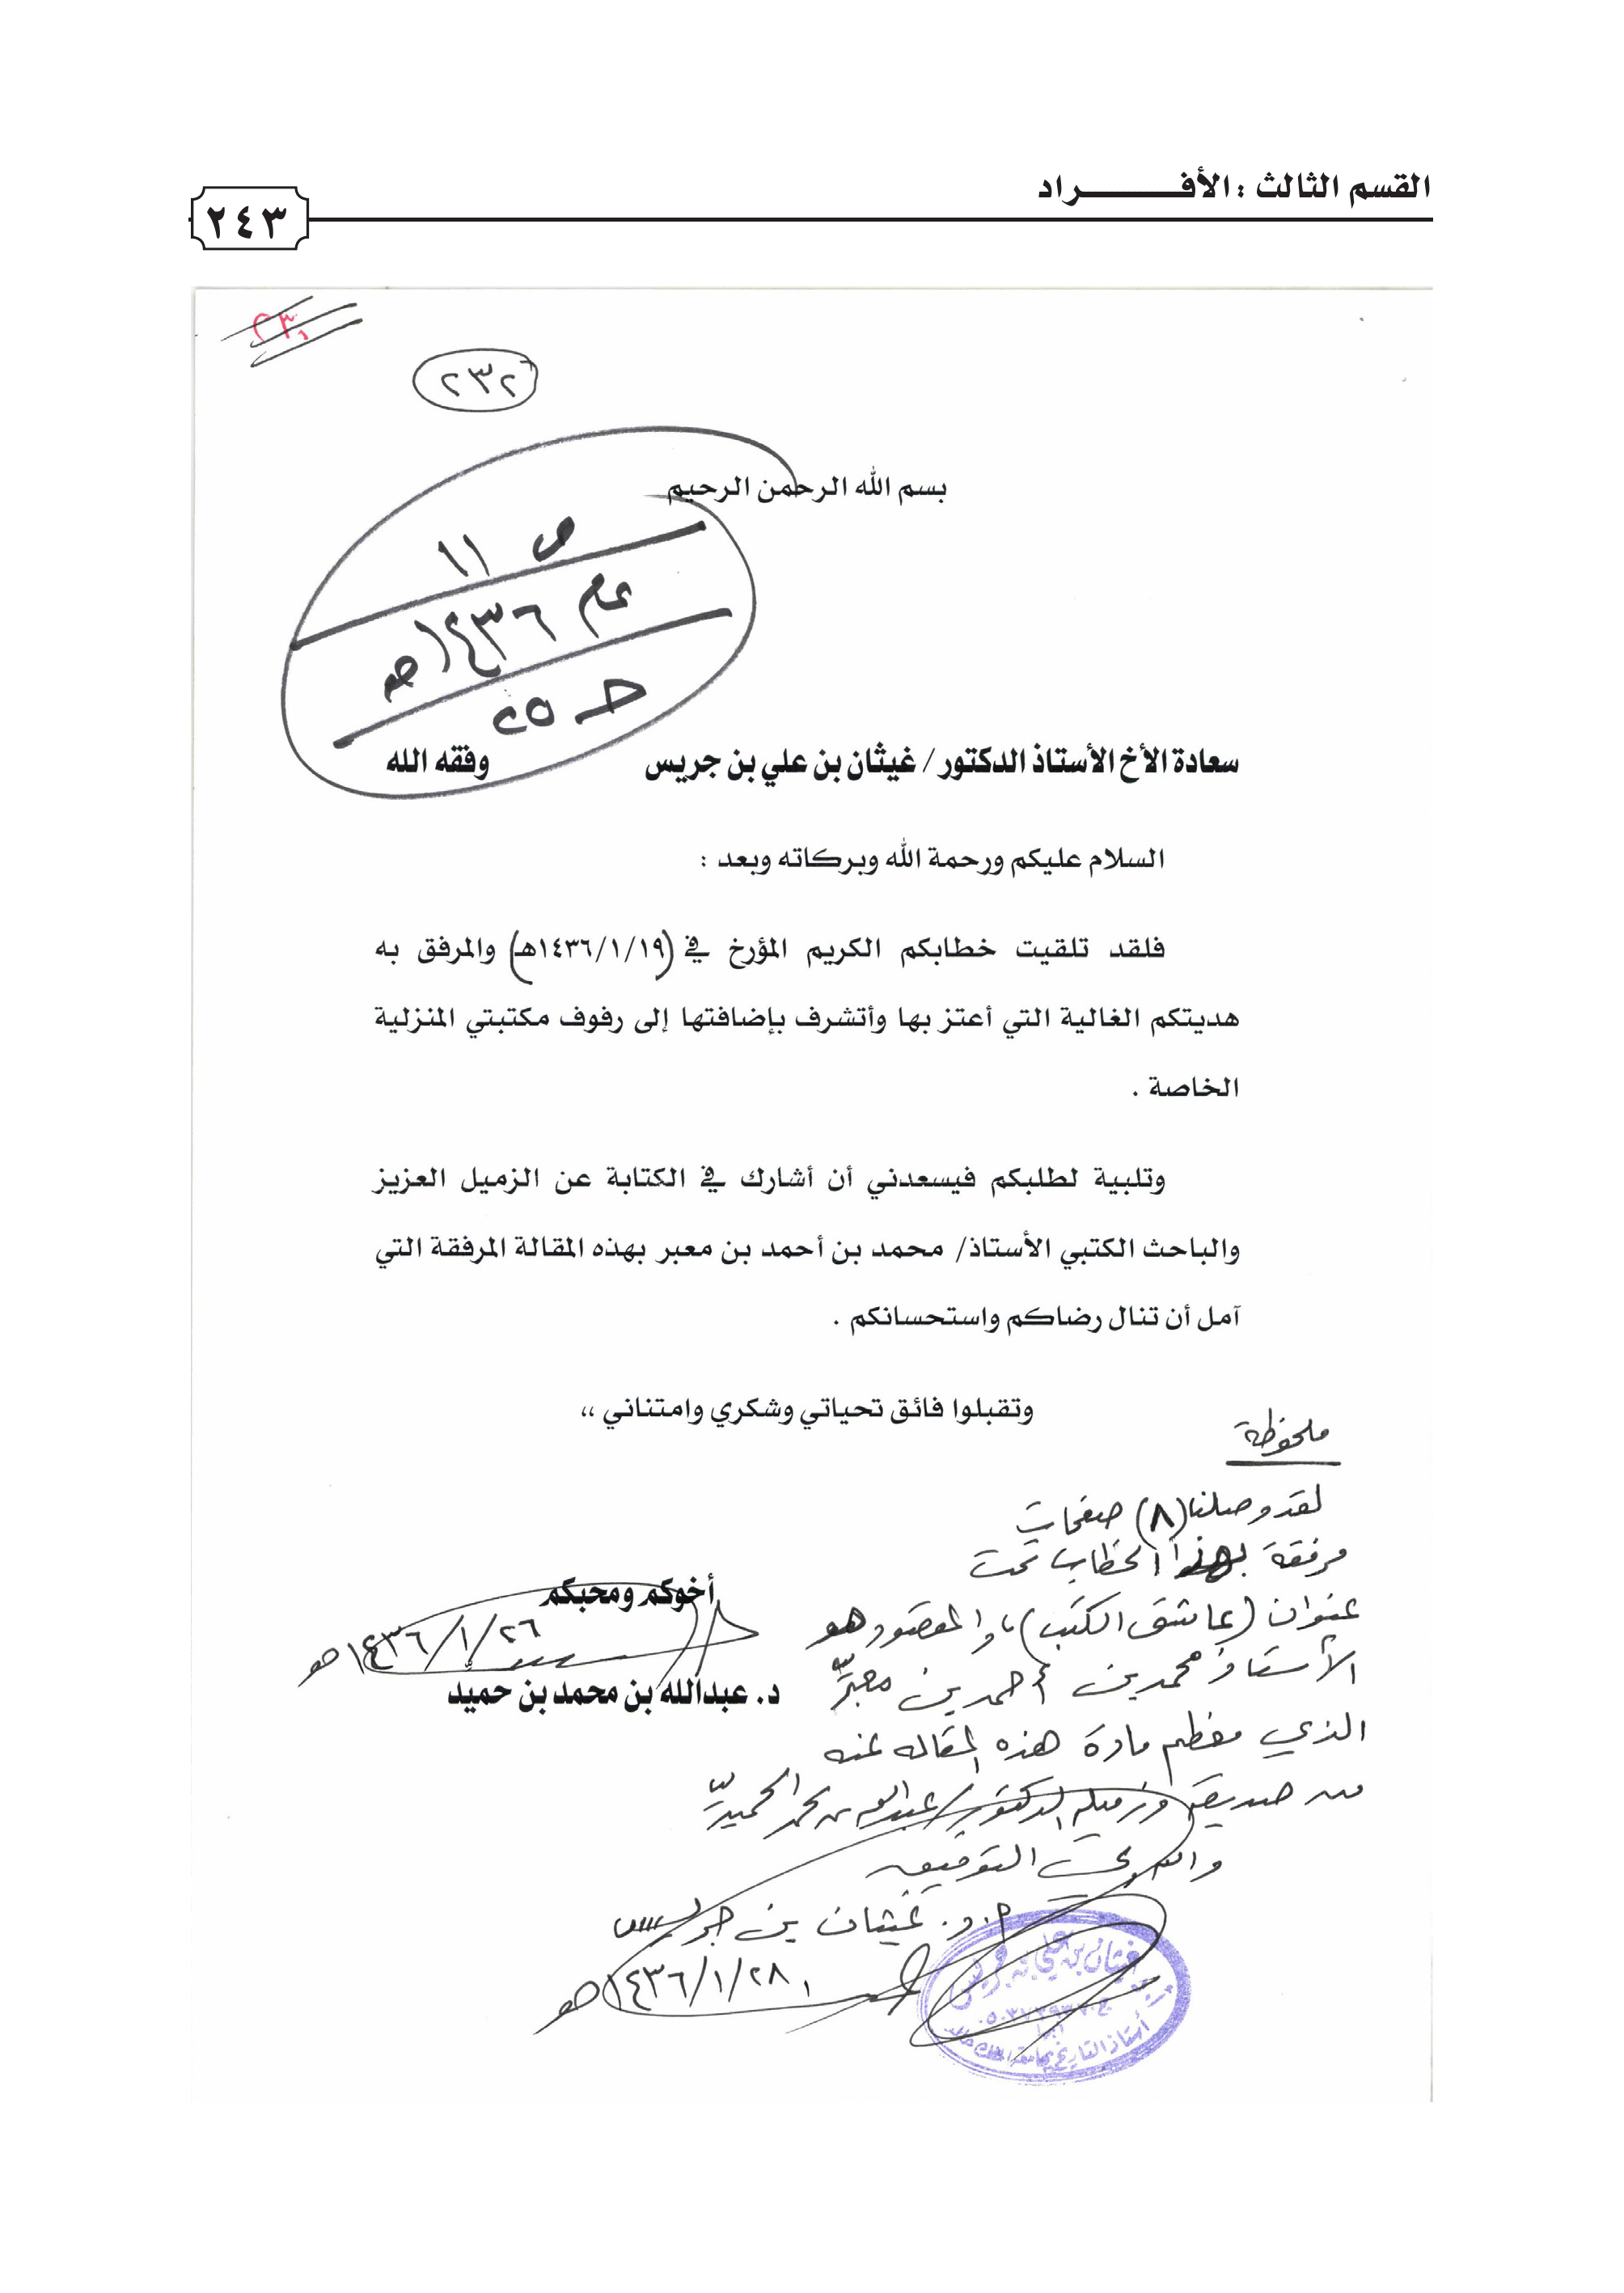 القسم الثالث : الأفـــــــــراد
٢٤٣
٢٣٠
٢٣٢
بسم الله الرحمن الرحيم
ص ١١
عام ١٤٣٦هـ
حـ ٢٥
سعادة الأخ الأستاذ الدكتور / غيثان بن علي بن جريس وفقه الله
السلام عليكم ورحمة الله وبركاته وبعد :
فلقد تلقيت خطابكم الكريم المؤرخ في (١٤٣٦/١/١٩هـ) والمرفق به
هديتكم الغالية التي أعتز بها وأتشرف بإضافتها إلى رفوف مكتبتي المنزلية
الخاصة .
وتلبية لطلبكم فيسعدني أن أشارك في الكتابة عن الزميل العزيز
والباحث الكتبي الأستاذ/ محمد بن أحمد بن معبر بهذه المقالة المرفقة التي
آمل أن تنال رضاكم واستحسانكم .
وتقبلوا فائق تحياتي وشكري وامتناني ،،
أخوكم ومحبكم
١٤٣٦/١/٢٦هـ
د. عبدالله بن محمد بن حميد
ملحوظة
لقد وصلنا (٨) صفحات
مرفقة بهذا الخطاب تحت
عنوان (عاشق الكتب) ، والمقصود هو
الأستاذ محمد بن أحمد بن معبر
الذي معظم مادة هذه المقاله عنه
من صديقه وزميله الدكتور/ عبدالله بن محمد الحميد
والله ولي التوفيق
أ.د. غيثان بن جريس
١٤٣٦/١/٢٨هـ
غيثان بن علي بن جريس
أستاذ التاريخ بجامعة الملك خالد